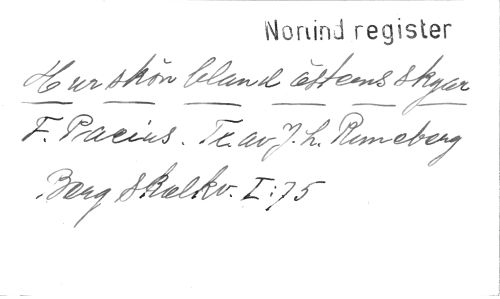 Nornind register
Hur skön bland östens skyar
F. Pacius. Tx. av J. L. Runeberg
Berg Skolkv. I:75